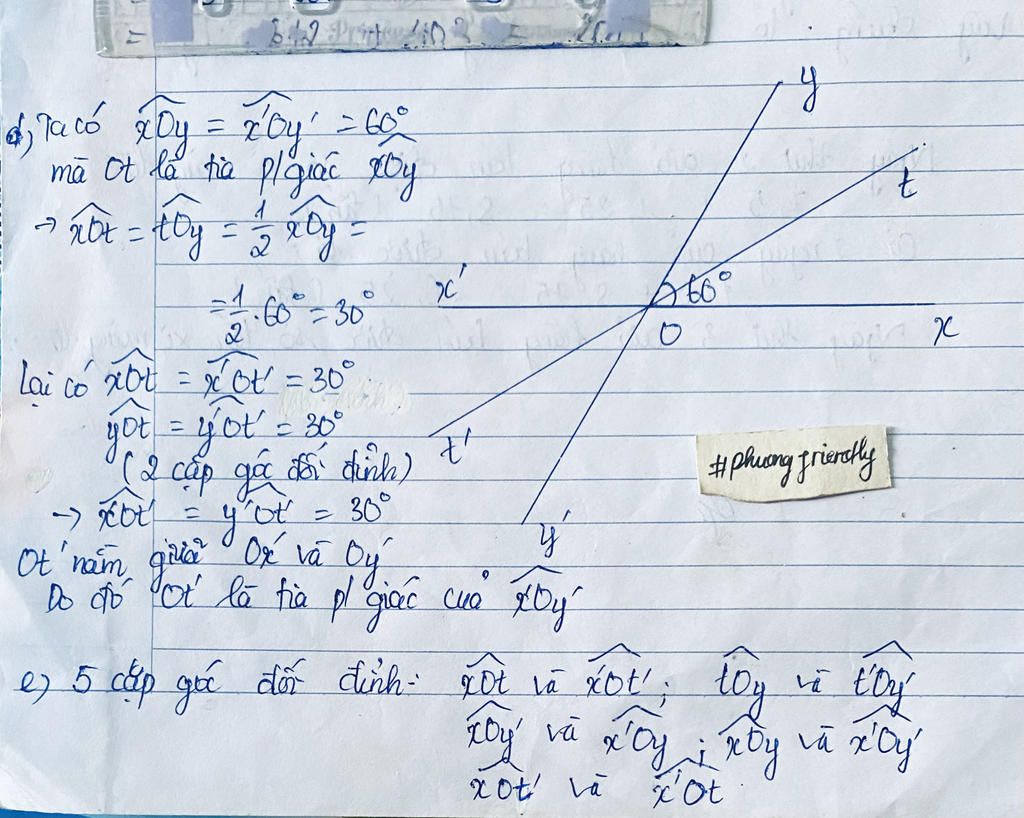 d, Ta có x̂Oy = x̂'Oy' = 60°
mà Ot là tia p/giác x̂Oy
→ x̂Ot = t̂Oy = 1/2 x̂Oy =
= 1/2 . 60° = 30°
Lại có x̂Ot = x̂'Ot' = 30°
ŷOt = ŷ'Ot' = 30°
(2 cặp góc đối đỉnh)
→ x̂'Ot' = ŷ'Ot' = 30°
Ot' nằm giữa Ox' và Oy'
Do đó Ot' là tia p/giác của x̂'Oy'
y
t
x'
60°
O
x
t'
y'
#phuongfriendly
e) 5 cặp góc đối đỉnh: x̂Ot và x̂'Ot'; t̂Oy và t̂'Oy'
x̂Oy' và x̂'Oy; x̂Oy và x̂'Oy'
x̂Ot' và x̂'Ot